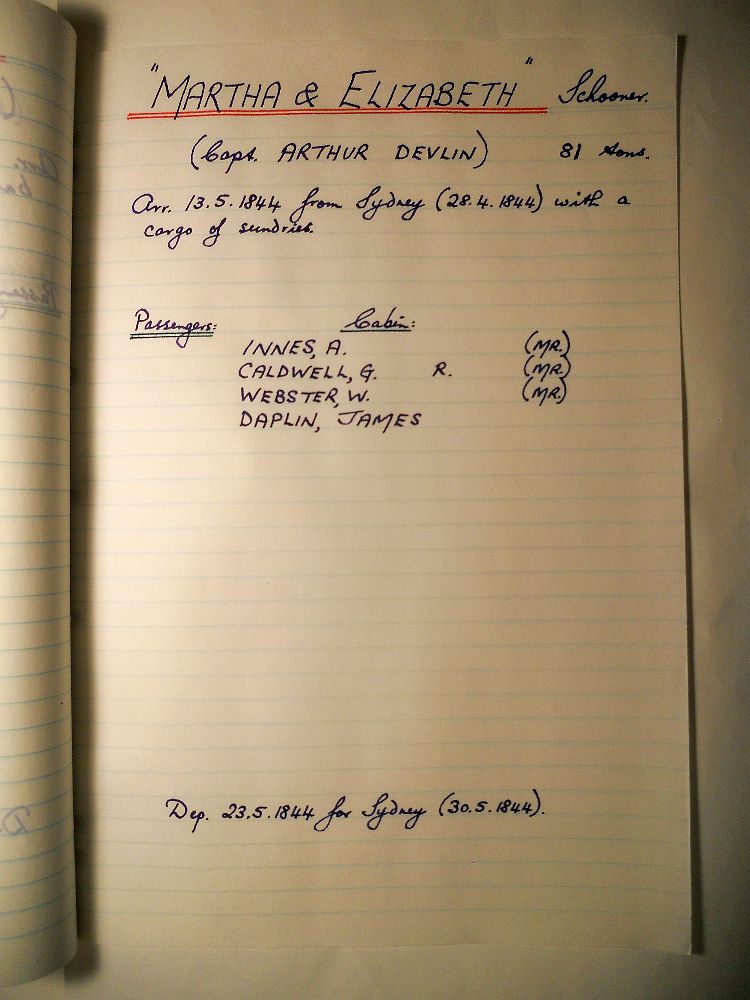 "MARTHA & ELIZABETH" Schooner.
(Capt. ARTHUR DEVLIN) 81 tons.
Arr. 13.5.1844 from Sydney (28.4.1844) with a
cargo of sundries.
Passengers: Cabin:
INNES, A. (MR.)
CALDWELL, G. R. (MR.)
WEBSTER, W. (MR.)
DAPLIN, JAMES
Dep. 23.5.1844 for Sydney (30.5.1844).